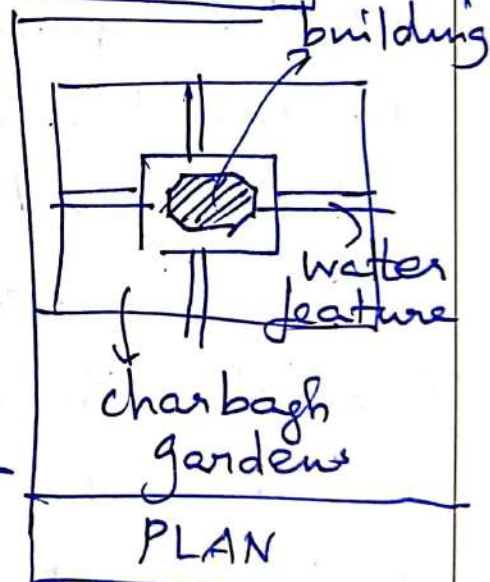 building
watter
feature
charbagh
gardens
PLAN